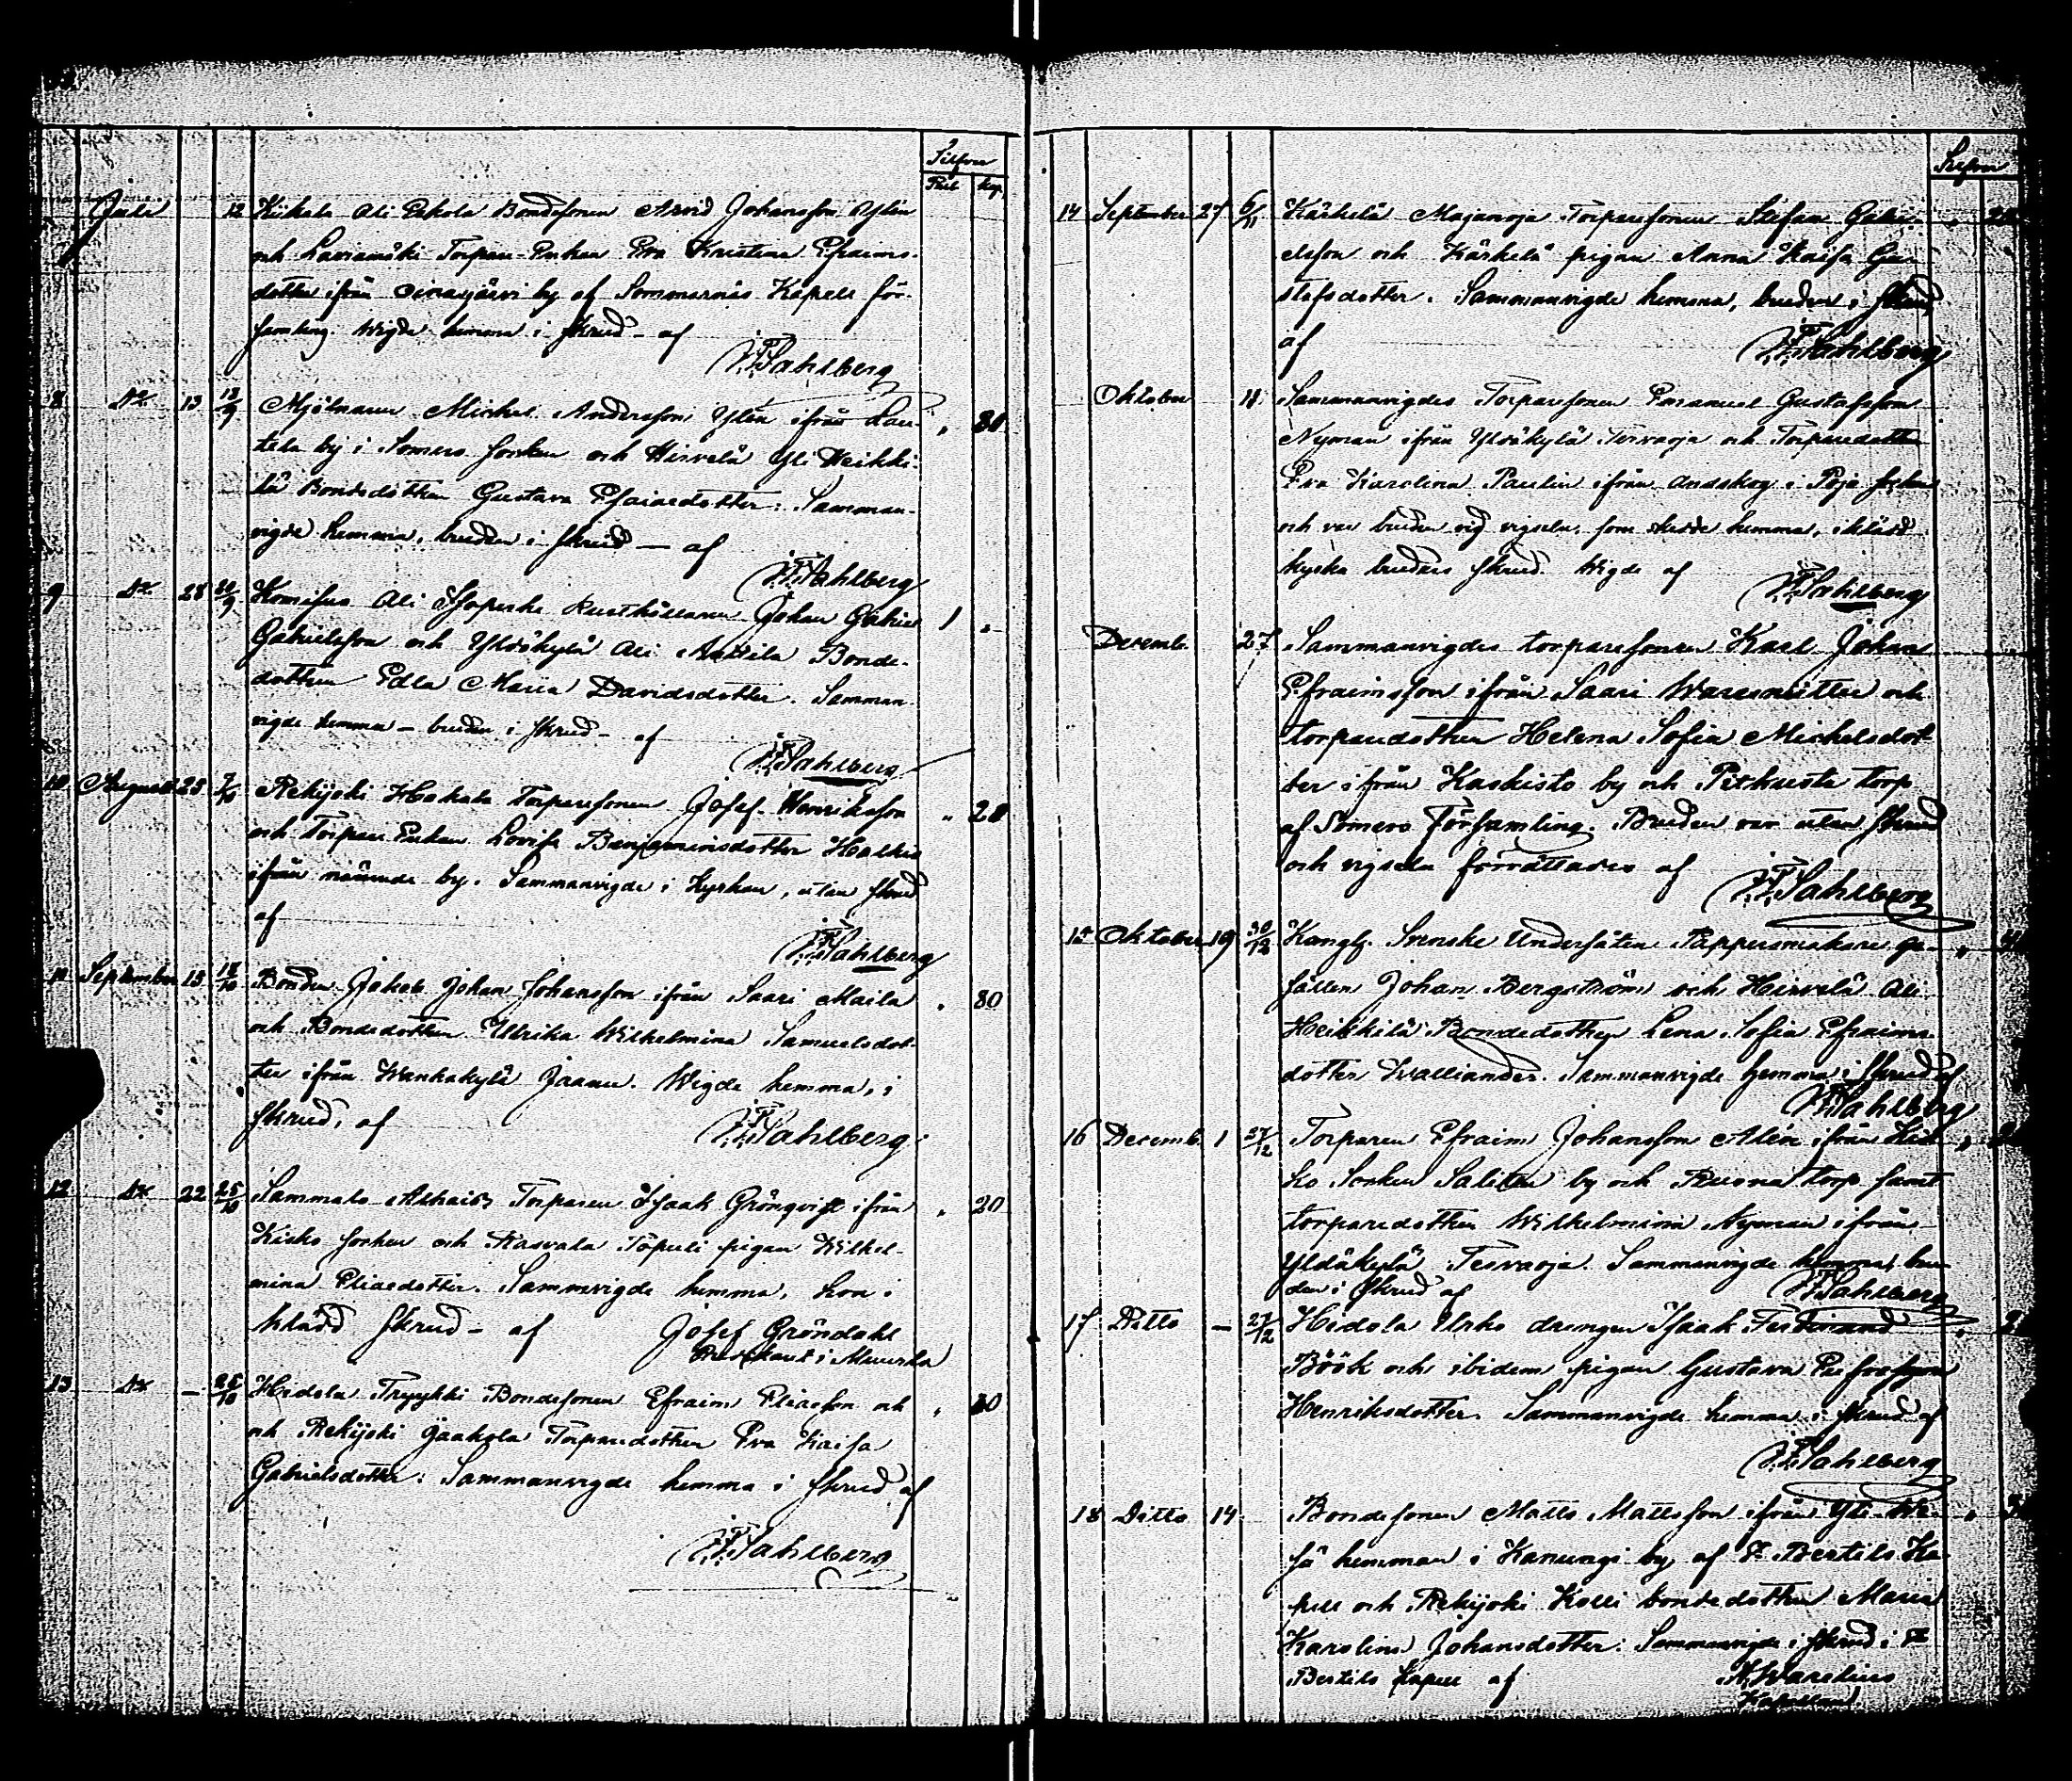 Silfver
Rub. kop.
Juli 12 Kiikala Ali Pakola Bondesonen Arvid Johansson Ylén
och Torpare-Enkan Eva Kristina Efraims-
dotter ifrån Oinasjärvi by af Sommarnäs Kapell för-
samling. Wigde hemma i skrud - af
F. F. Sahlberg
8 Do 13 13/9 Mjölnaren Michel Andersson Ylén ifrån Lau-
tela by i Somero socken och Hirvelä Yli Heikki-
lä Bondedottren Gustava Esaiaedotter. Samman-
vigde hemma, bruden i skrud — af
F. F. Sahlberg
9 Do 28 Komisuo Ali Rusthållaren Johan Gabriel 1 „
Gabrielsson och Yldäkylä Ali Bonde-
dottren Edla Maria Davidsdotter. Samman-
vigde hemma - bruden i skrud - af
F. F. Sahlberg
10 Augusti 25 7/10 Rekijoki Hakala Torparesonen Josef Henriksson „ 20
och Torpare Enkan Lovisa Benjaminsdotter
ifrån nämnde by. Sammanvigde i Kyrkan, utan skrud
af
F. F. Sahlberg
11 September 15 18/10 Bonden Jakob Johan Johansson ifrån Saari Maila „ 80
och Bondedottren Ulrika Wilhelmina Samuelsdot-
ter ifrån Wanhakylä Jaanu. Wigde hemma, i
skrud, af
F. F. Sahlberg
12 Do 22 25/10 Sammalo Torparen Isaak Grönqvist ifrån „ 20
Kisko socken och Kasvala Töpuli pigan Wilhel-
mina Eliaedotter. Sammavigde hemma, hon i
klädd skrud - af Josef Gröndahl
Predikant i Muurla
13 Do — 25/10 Hidola Tryykki Bondesonen Efraim Eliaeson och „
och Rekijoki Jaakola Torparedottren Eva Kaisa
Gabrielsdotter. Sammanvigde hemma i skrud af
F. F. Sahlberg
Silfver
14 September 27 6/11 Kärkelä Majanoja Torparesonen Stefan Gabri-
elsson och Kärkelä pigan Anna Kaisa Gu-
stafsdotter. Sammanvigde hemma, bruden i skrud
af
F. F. Sahlberg
Oktober 18 Sammanvigdes Torparesonen Emanuel Gustafsson
Nyman ifrån Yldäkylä Tervaoja och Torparedottren
Eva Karolina Paulin ifrån Andskog i Pojo socken
och var bruden vid vigseln, som skedde hemma, iklädd
kyrko brudens skrud. Wigde af
F. F. Sahlberg
Decemb. 27 Sammanvigdes torparesonen Karl Johan
Efraimsson ifrån Saari och
torparedottren Helena Sofia Michelsdot-
ter ifrån Kaskisto by och Pitkusta torp
af Somero Församling. Bruden var utan skrud
och vigseln förrättades af
F. F. Sahlberg
15 Oktober 19 30/12 Kongl. Svenske Undersåten Pappersmakare ge-
sällen Johan Bergström och Hirvelä Ali
Heikkilä Bondedottren Lena Sofia Efraims-
dotter Walliander. Sammanvigde hemma i skrud af
F. F. Sahlberg
16 Decemb. 1 27/12 Torparen Efraim Johansson Alén ifrån Kis-
ko Socken Salittu by och torp samt
torparedottren Wilhelmina Nyman ifrån
Yldäkylä Tervaoja. Sammanvigde hemma, bru-
den i skrud af
F. F. Sahlberg
17 Ditto — 27/12 Hidola Uhko drengen Isaak Ferdinand
Böök och ibidem pigan Gustava
Henriksdotter. Sammanvigde hemma i skrud af
F. F. Sahlberg
18 Ditto 14 Bondesonen Matts Mattsson ifrån Yli-We-
sä hemman i Kanungi by af St Bertils Ka-
pell och Rekijoki Kolli bondedottren Maria
Karolina Johansdotter. Sammanvigde i skrud i St
Bertils Kapell af